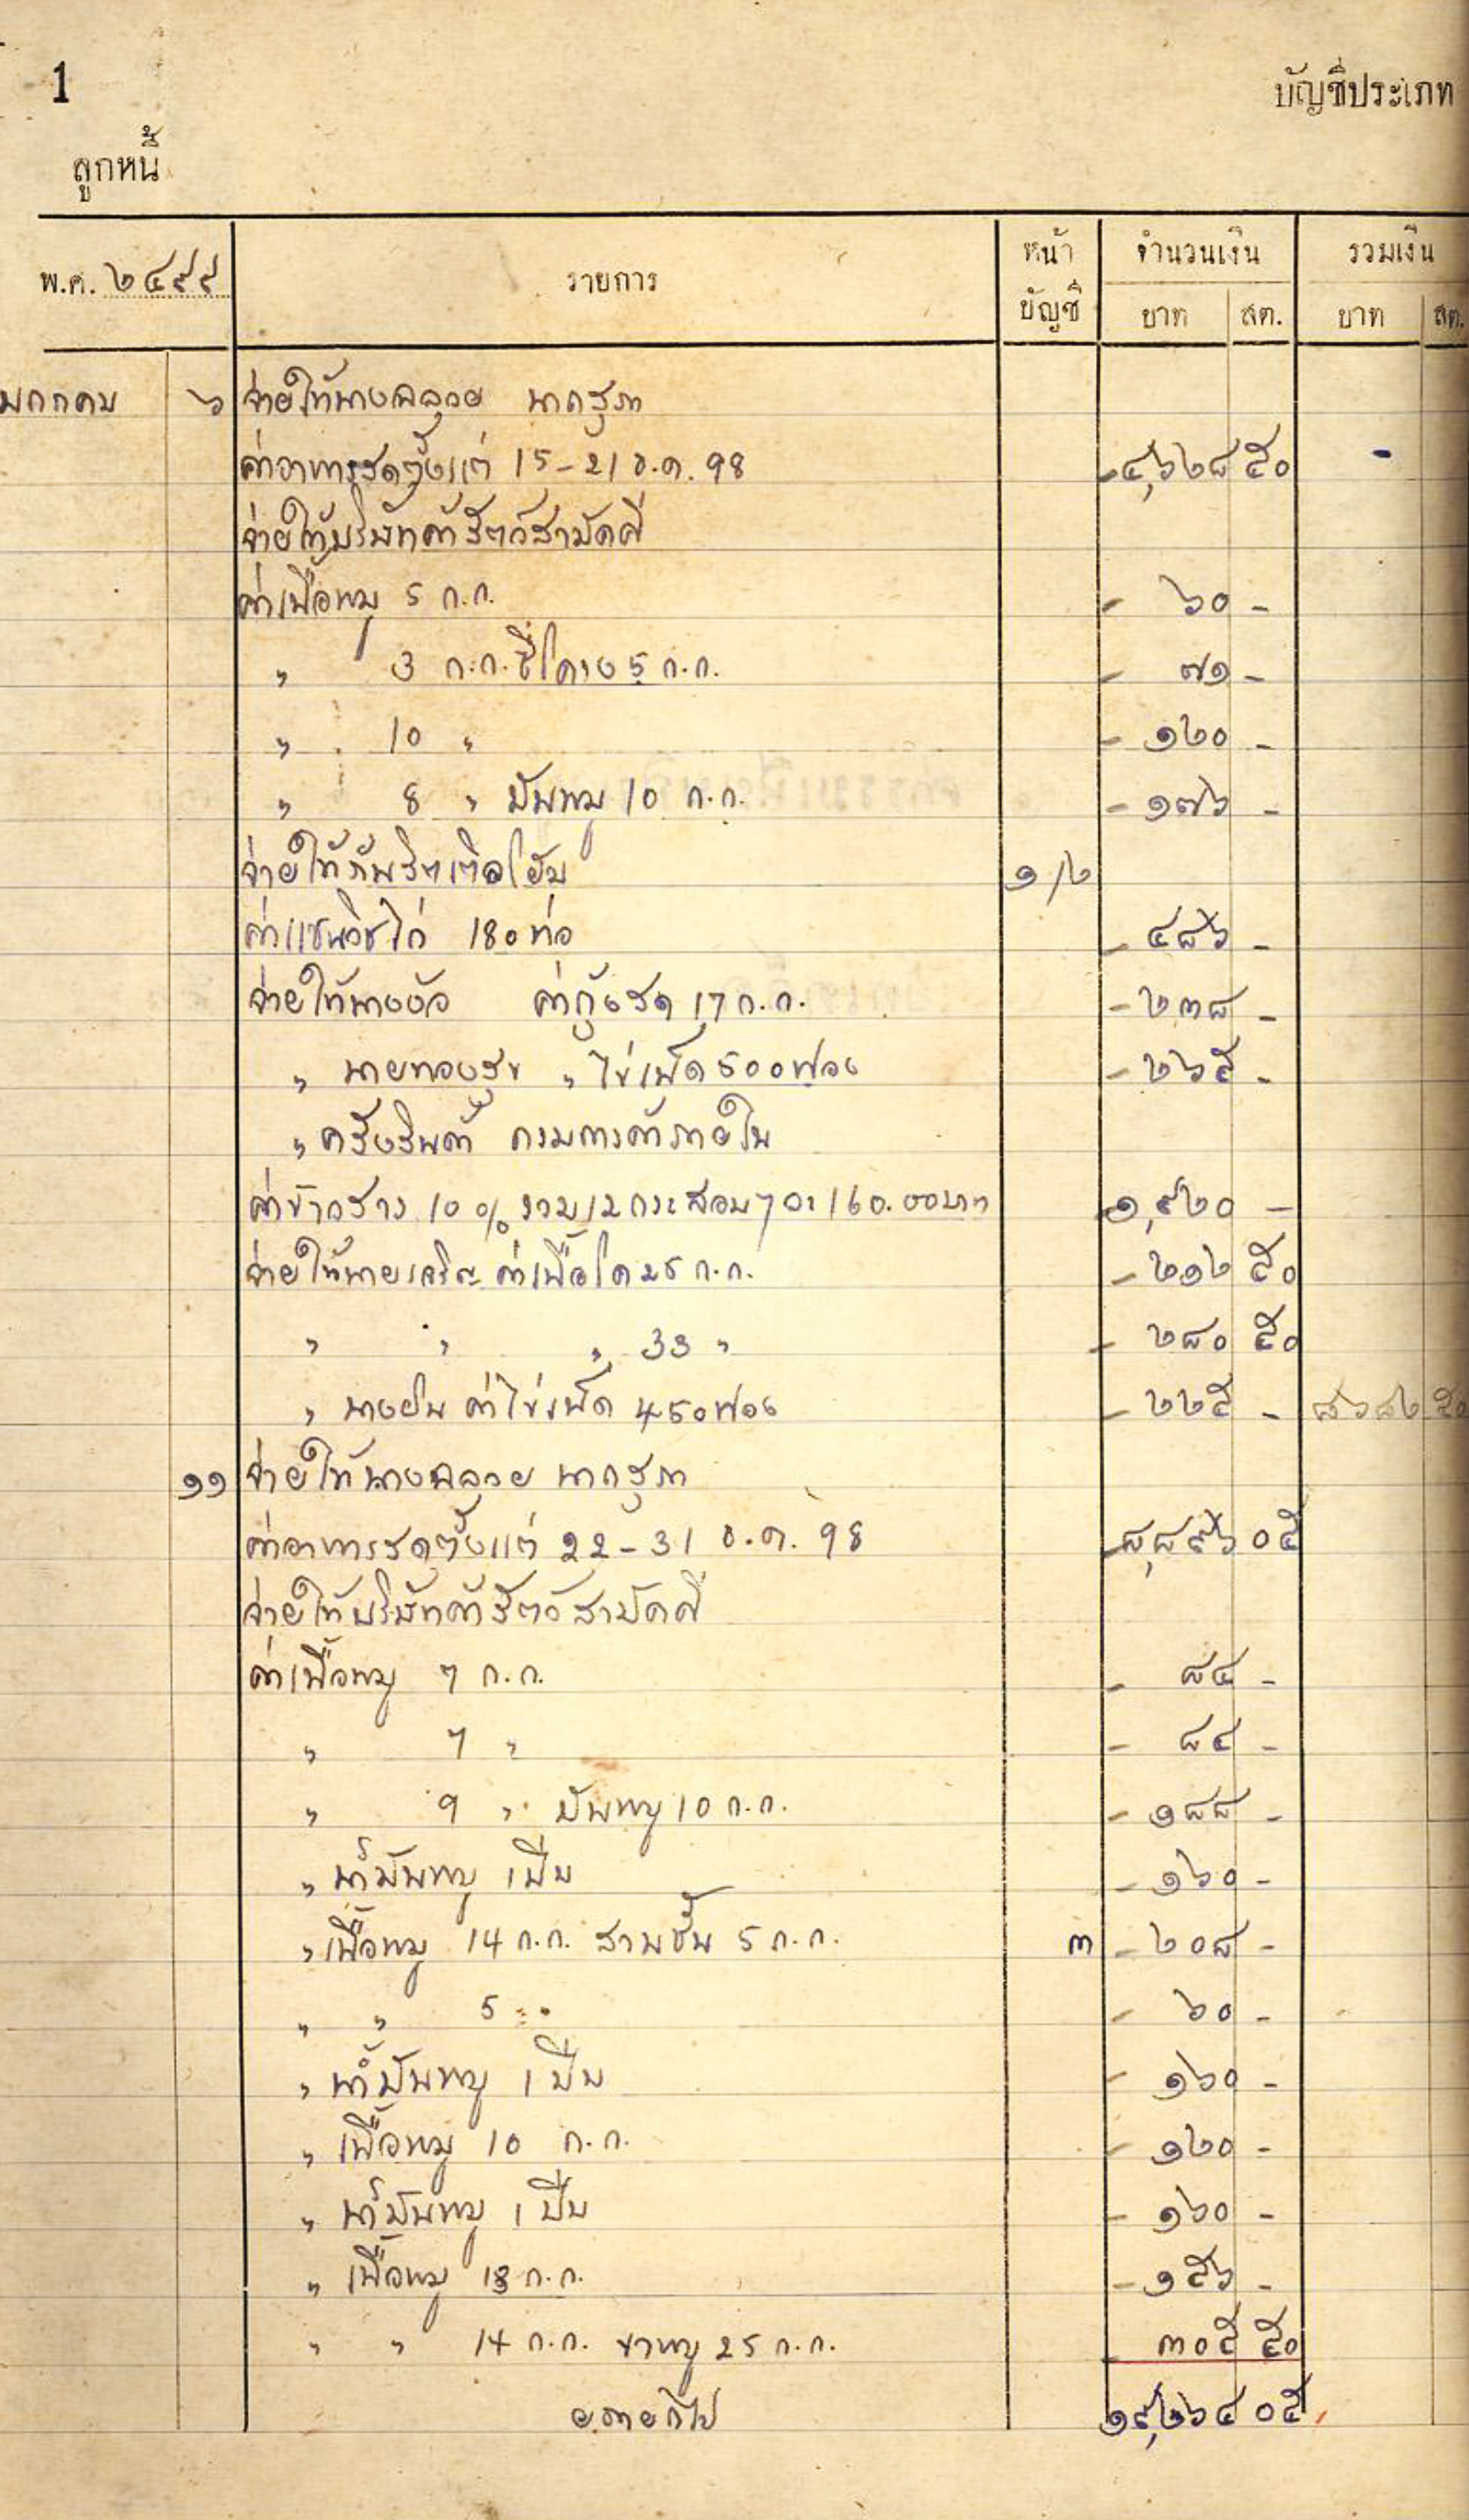 1
บัญชีประเภท
ลูกหนี้
พ.ศ. ๒๔๙๙ รายการ หน้าบัญชี จำนวนเงิน บาท สต. รวมเงิน บาท สต.
มกราคม ๖ จ่ายให้นางฉลวย นาคสุภา
ค่าอาหารสดตั้งแต่ 15-21 ธ.ค. 98 -๔,๖๒๘ ๕๐ -
จ่ายให้บริษัทค้าสัตว์สามัคคี
ค่าเนื้อหมู 5 ก.ก. - ๖๐ -
" 3 ก.ก. ซี่โครง 5 ก.ก. - ๗๑ -
" 10 " - ๑๒๐ -
" 8 " มันหมู 10 ก.ก. - ๑๗๖ -
จ่ายให้ ๑/๒
ค่าแซนวิชไก่ 180 ห่อ - ๔๘๖ -
จ่ายให้นางงัว ค่ากุ้งสด 17 ก.ก. - ๒๓๘ -
" นายทองสุข " ไข่เป็ด 500 ฟอง - ๒๖๕ -
" คลังสินค้า กรมการค้าภายใน
ค่าข้าวสาร 10% รวม 12 กระสอบๆ ละ 160.00 บาท -๑,๙๒๐ -
จ่ายให้นายเจริญ ค่าเนื้อโค 25 ก.ก. - ๒๑๒ ๕๐
" " " 33 " - ๒๘๐ ๕๐
" นางยิน ค่าไข่เป็ด 450 ฟอง - ๒๒๕ - ๘๖๘๒ ๕๐
๑๑ จ่ายให้นางฉลวย นาคสุภา
ค่าอาหารสดตั้งแต่ 22-31 ธ.ค. 98 -๘,๘๙๖ ๐๕
จ่ายให้บริษัทค้าสัตว์สามัคคี
ค่าเนื้อหมู 7 ก.ก. - ๘๔ -
" 7 " - ๘๔ -
" 9 " มันหมู 10 ก.ก. - ๑๘๘ -
" น้ำมันหมู 1 ปีบ - ๑๖๐ -
" เนื้อหมู 14 ก.ก. สามชั้น 5 ก.ก. ๓ - ๒๐๘ -
" " 5 " - ๖๐ -
" น้ำมันหมู 1 ปีบ - ๑๖๐ -
" เนื้อหมู 10 ก.ก. - ๑๒๐ -
" น้ำมันหมู 1 ปีบ - ๑๖๐ -
" เนื้อหมู 13 ก.ก. - ๑๕๖ -
" " 14 ก.ก. ขาหมู 25 ก.ก. - ๓๐๕ ๕๐
ยอดยกไป ๑๙,๒๖๔ ๐๕